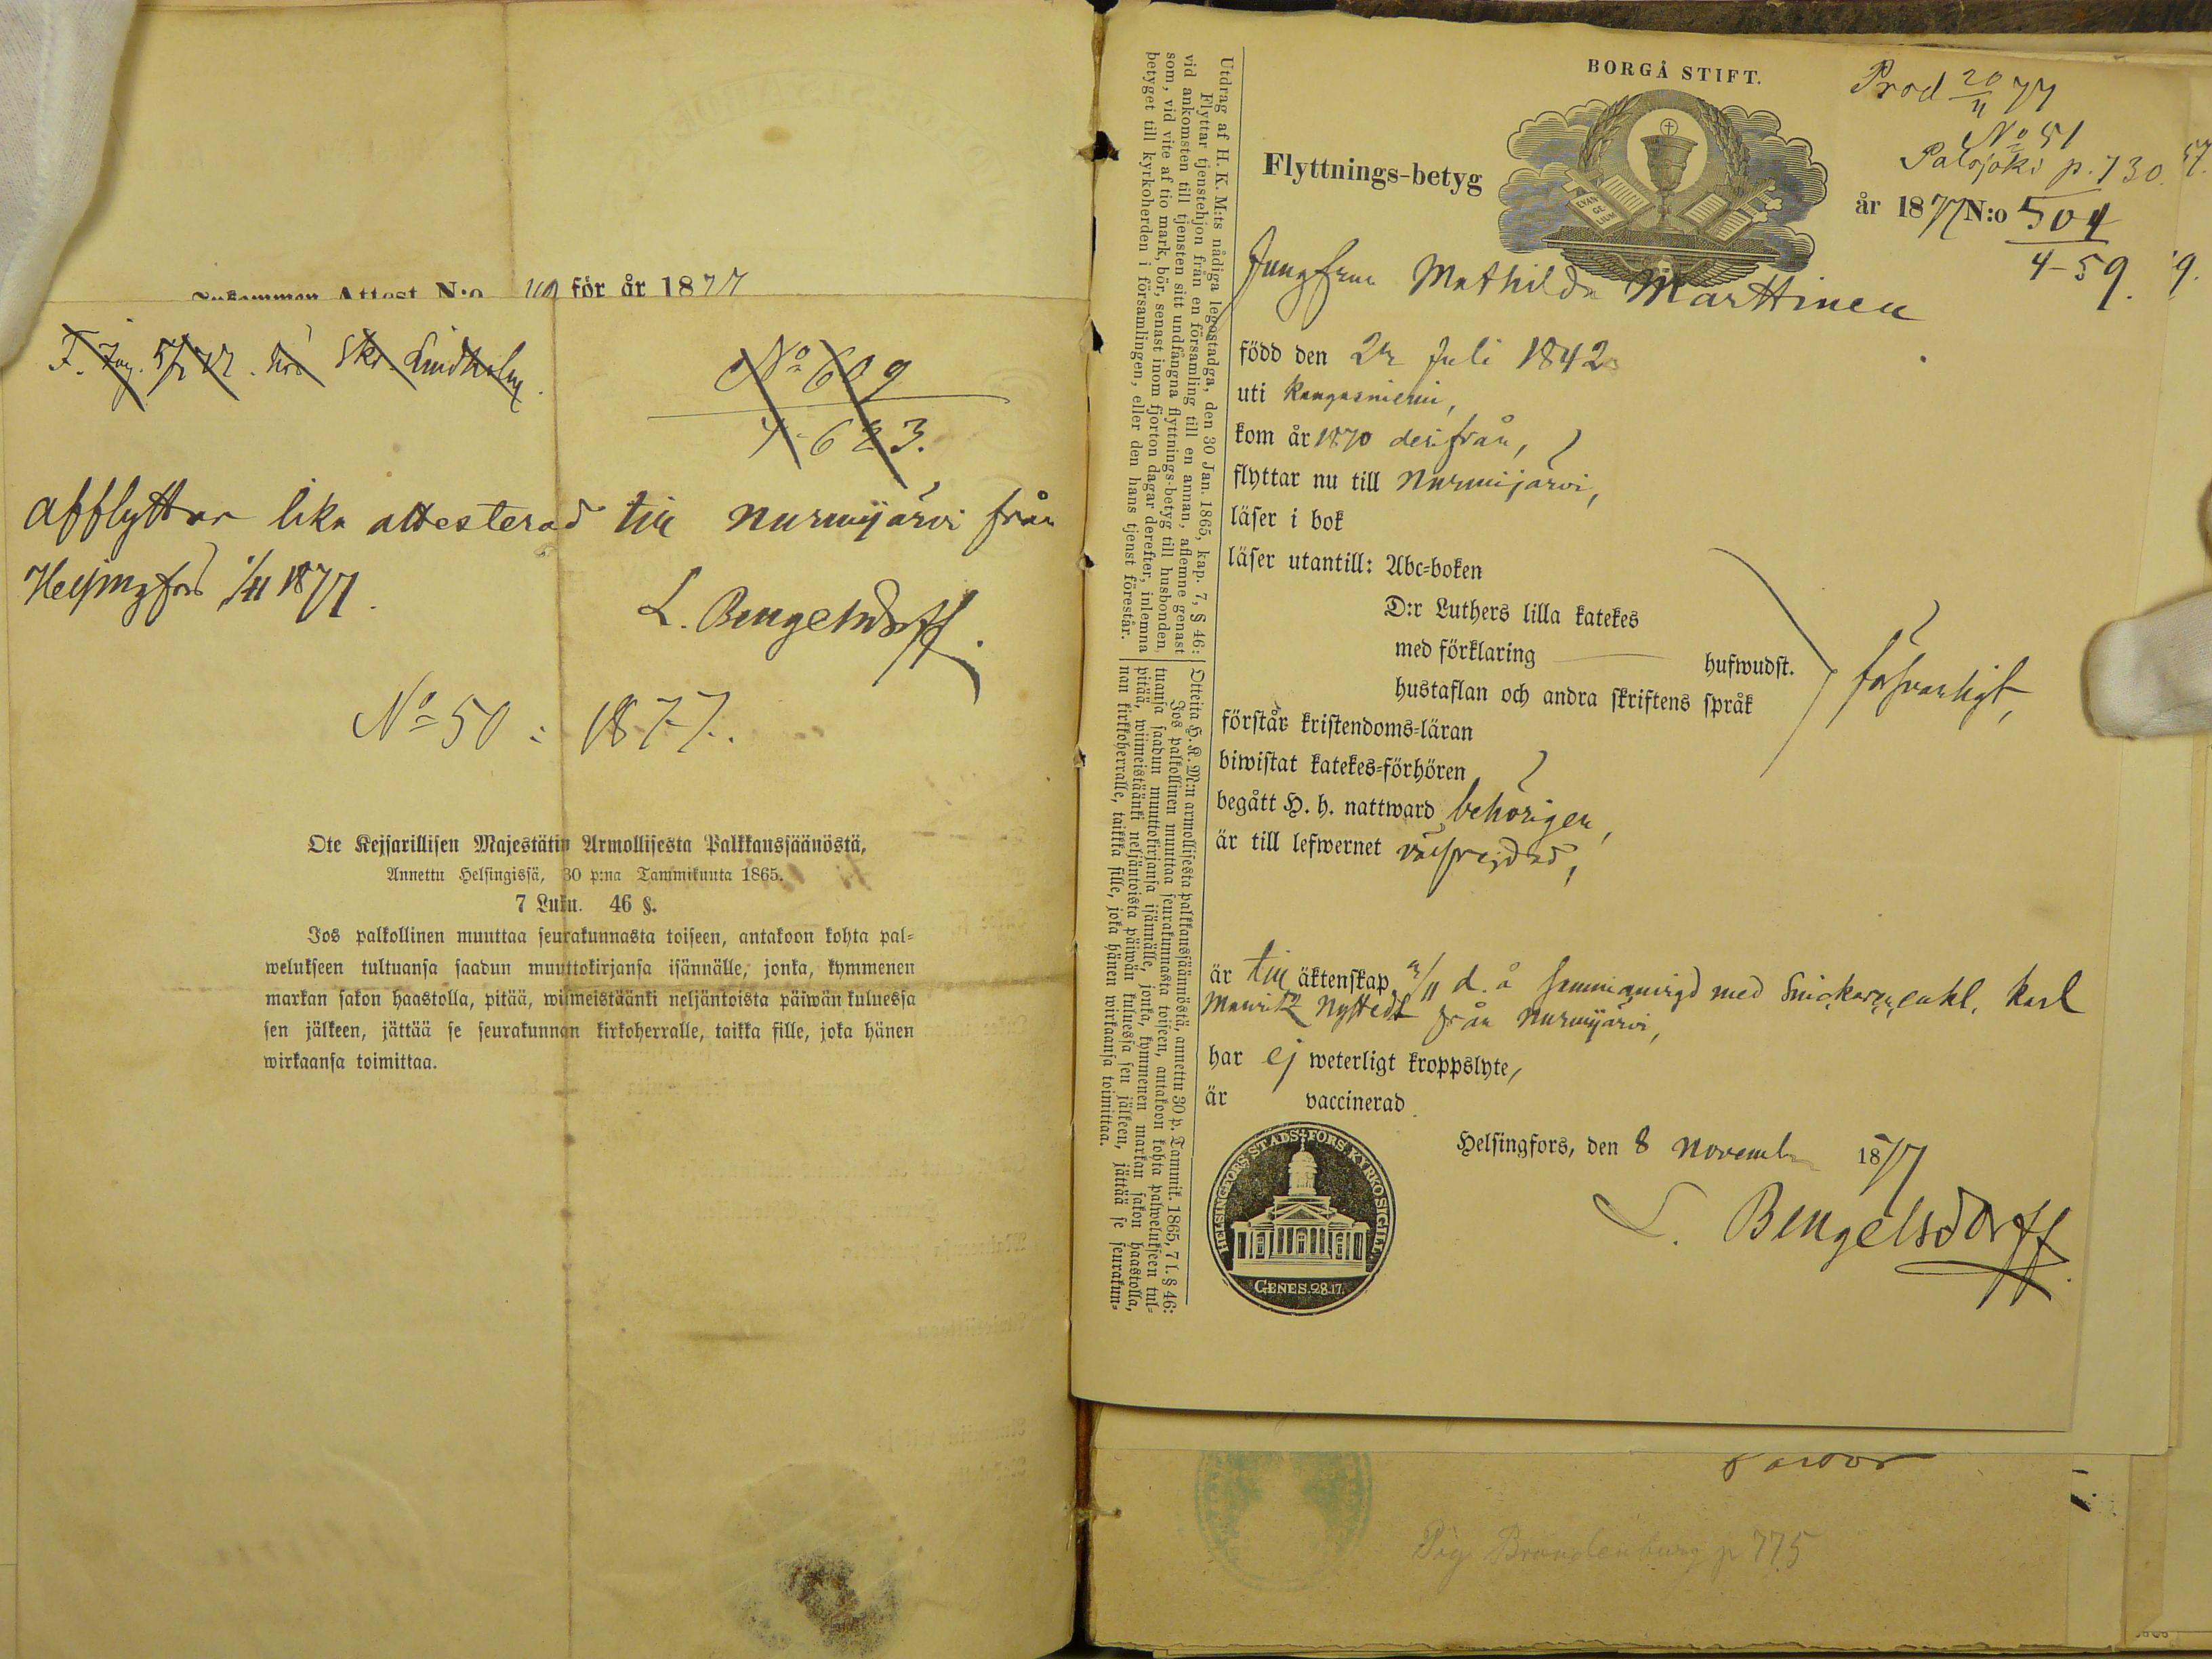 Inkommen Attest N:o för år 1877
Lindholm
No 609
4-623.
Afflyttar lika attesterad till Nurmijärvi från
Helsingfors 1/11 1877.
L. Bengelsdorff.
No 50 : 1877.
Ote Kejsarillisen Majestätin Armollisesta Palkkaussäänöstä,
Annettu Helsingissä, 30 p:nä Tammikuuta 1865.
7 Luku. 46 §.
Jos palkollinen muuttaa seurakunnasta toiseen, antakoon kohta pal-
welukseen tultuansa saadun muuttokirjansa isännälle, jonka, kymmenen
markan sakon haastolla, pitää, wiimeistäänki neljäntoista päiwän kuluessa
sen jälkeen, jättää se seurakunnan kirkoherralle, taikka sille, joka hänen
wirkaansa toimittaa.
Utdrag af H. K. M:ts nådiga legostadga, den 30 Jan. 1865, kap. 7, § 46:
Flyttar tjenstehjon från en församling till en annan, aflemne genast
vid ankomsten till tjensten sitt undfångna flyttnings-betyg till husbonden,
som, vid vite af tio mark, bör, senast inom fjorton dagar derefter, inlemna
betyget till kyrkoherden i församlingen, eller den hans tjenst förestår.
Otteita H. K. M:n armollisesta palkkaussäännöstä, annettu 30 p. Tammik. 1865, 7 l. § 46:
Jos palkollinen muuttaa seurakunnasta toiseen, antakoon kohta palwelukseen tul-
tuansa saadun muuttokirjansa isännälle, jonka, kymmenen markan sakon haastolla,
pitää, wiimeistäänki neljäntoista päiwän kuluessa sen jälkeen, jättää se seurakun-
nan kirkkoherralle, taikka sille, joka hänen wirkaansa toimittaa.
BORGÅ STIFT.
Prod 20/11 77
No 51
Palojoki p. 730.
Flyttnings-betyg
EVAN
GE
LIUM
år 1877 N:o 504
4-59.
Jungfrun Mathilda Marttinen
född den 22 Juli 1842
uti Kangasniemi,
kom år 1870 derifrån,
flyttar nu till Nurmijärvi,
läser i bok
läser utantill: Abc-boken
D:r Luthers lilla katekes
med förklaring hufwudst.
hustaflan och andra skriftens språk
försvarligt,
förstår kristendoms-läran
biwistat katekes-förhören
begått H. h. nattward behörigen,
är till lefwernet välfrejdad,
är till äktenskap /11 d. å sammanvigd med Snickaren, enkl. Karl
Mauritz Nystedt från Nurmijärvi,
har ej weterligt kroppslyte,
är vaccinerad
Helsingfors, den 8 November 1877
L. Bengelsdorff.
HELSINGFORS STADS FÖRS. KYRKO SIGILL.
GENES. 28.17.
Pig. Brandenburg p 775